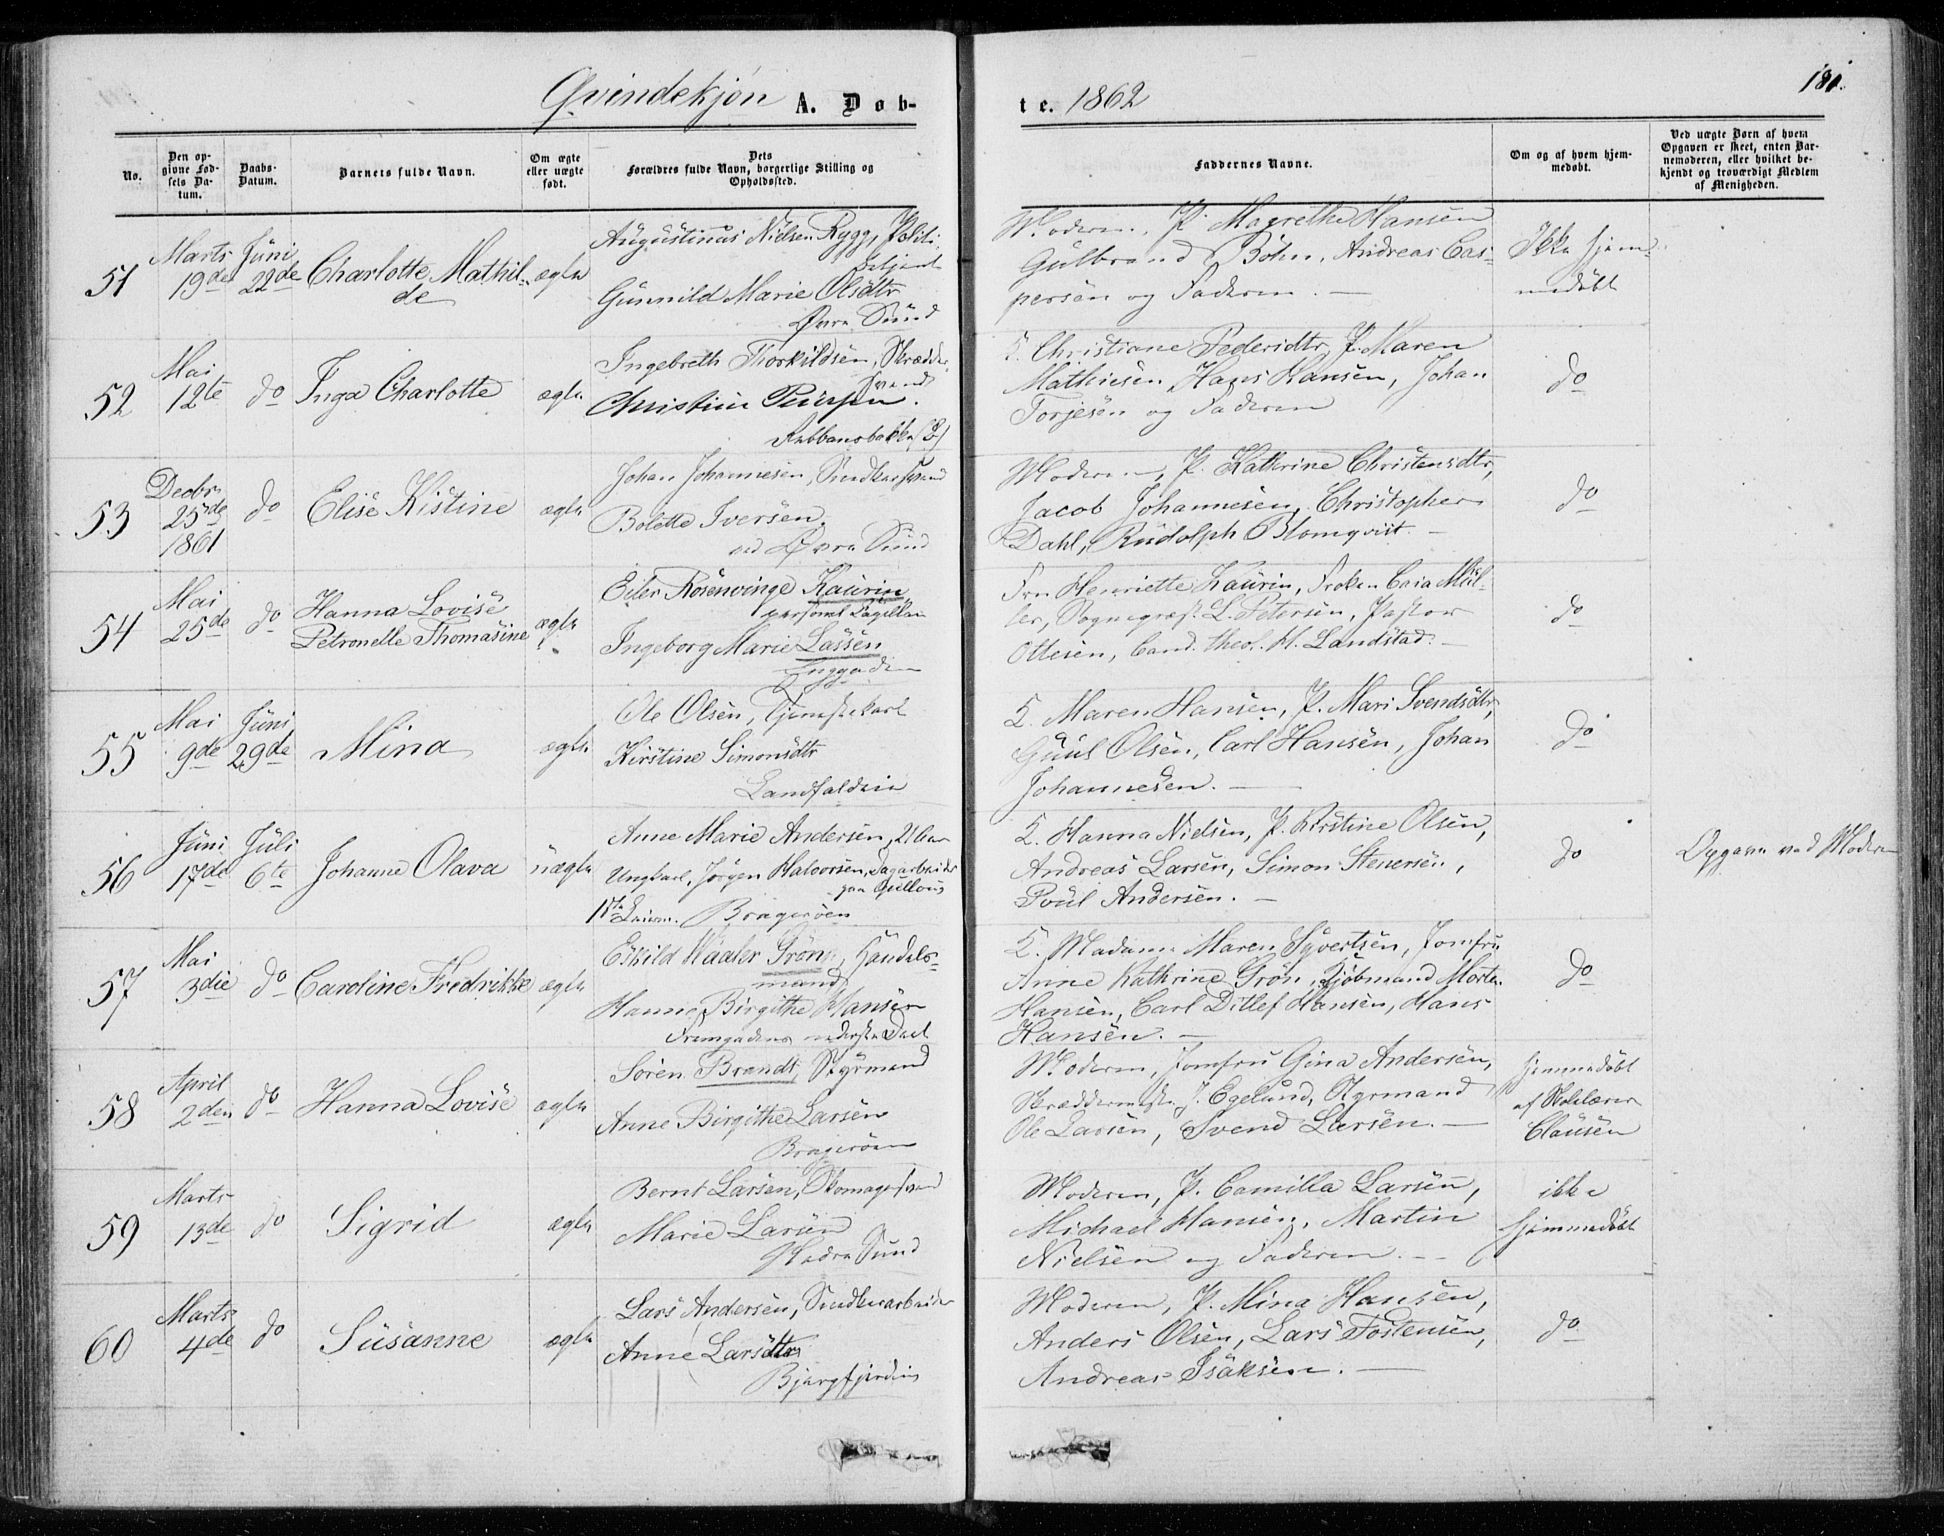 Qvindekjøn A. Døb-
te. 1862
181.
No.
Den op-
givne Fød-
sels Da-
tum.
Daabs-
Datum.
Barnets fulde Navn.
Om ægte
eller uægte
født.
Dets
Forældres fulde Navn, borgerlige Stilling og
Opholdssted.
Faddernes Navne.
Om og af hvem hjem-
medøbt.
Ved uægte Børn af hvem
Opgaven er skeet, enten Bar-
nemoderen, eller hvilket be-
kjendt og troværdigt Medlem
af Menigheden.
51
Marts
19de
Juni
22de
Charlotte Mathil-
de
ægte
Augustinus Nielsen Rygg, Politi-
betjent
Gunnild Marie Olsdtr
Øvre Sund
Moderen, P. Magrethe Hansen
Gulbrand Bøhn, Andreas Cas-
persen og Faderen. —
Ikke hjem-
medøbt
52
Mai
12te
do
Inga Charlotte
ægte
Ingebreth Thorkildsen, Skrædder-
svend
Christine
K. Christiane Pedersdtr, P. Maren
Mathiesen, Hans Hansen, Johan
Torjesen og Faderen
do
53
Decbr
25de
1861
do
Elise Kistine
ægte
Johan Johannesen, Snedkersvend
Bolette Iversen.
ved Øvre Sund
Moderen, P. Kathrine Christensdtr,
Jacob Johannesen, Christopher
Dahl, Rudolph Blomqvist. —
do
54
Mai
25de
do
Hanna Lovise
Petronelle Thomasine
ægte
Eiler Rosenvinge Kaurin
personel Capellan
Ingeborg Marie Lassen
Enggaden
Fru Henriette Kaurin, Frøken Caia Møl-
ler, Sognepræst L. Petersen, Pastor
Ottesen, Cand. theol. H. Landstad. —
do
55
Mai
9de
Juni
29de
Mina
ægte
Ole Olsen, Tjenestekarl
Kirstine Simonsdtr
Landfaldøie
K. Maren Hansen, P. Mari Svendsdtr,
Guul Olsen, Carl Hansen, Johan
Johannesen. —
do
56
Juni
17de
Juli
6te
Johanne Olava
uægte
Anne Marie Andersen, 21 Aar
Ungkarl, Jørgen Halvorsen, Sagarbeider
paa Gulloug
1ste Leierm. Bragerøen
K. Hanna Nielsen, P. Kirstine Olsen,
Andreas Larsen, Simon Stenersen,
Poul Andersen. —
do
Opgave ved Moderen
57
Mai
3die
do
Caroline Fredrikke
ægte
Eskild Waaler Grøn, Handels-
mand
Hanne Birgithe Hansen
Fremgadens nederste Deel
K. Madame Maren Syvertsen, Jomfru
Anne Kathrine Grøn, Kjøbmand Morten
Hansen, Carl Ditlef Hansen, Hans
Hansen. —
do
58
April
2den
do
Hanna Lovise
ægte
Søren Brandt, Styrmand
Anne Birgithe Larsen
Bragerøen
Moderen, Jomfru Gina Andersen,
Skræddermester J. Egelund, Styrmand
Ole Larsen, Svend Larsen. —
Hjemmedøbt
af Skolelærer
Clausen
59
Marts
13de
do
Sigrid
ægte
Bernt Larsen, Skomagersvend
Marie Larsen
Nedre Sund
Moderen, P. Camilla Larsen,
Michael Hansen, Martin
Nielsen og Faderen. —
ikke
hjemmedøbt
60
Marts
4de
do
Susanne
ægte
Lars Andersen, Snedkerarbeider
Anne Larsdtr
Bjergfjerdin
Moderen, P. Mina Hansen,
Anders Olsen, Lars Tostensen,
Andreas Isaksen. —
do